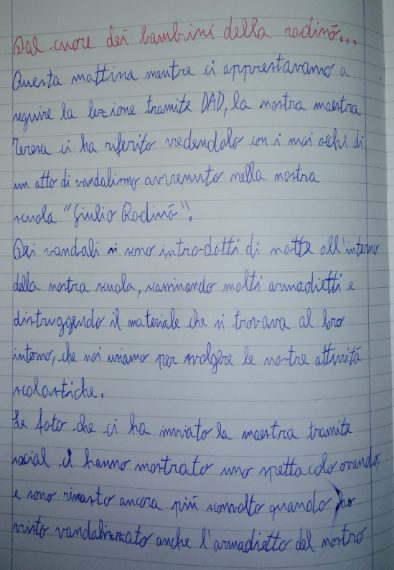 Dal cuore dei bambini della radinò...
Questa mattina mentre ci apprestavamo a
seguire la lezione tramite DAD, la nostra maestra
Teresa ci ha riferito vedendolo con i miei occhi di
un atto di vandalismo avvenuto nella nostra
scuola "Giulio Rodinò".
Dei vandali si sono intro-dotti di notte all'interno
della nostra scuola, scassinando molti armadietti e
distruggendo il materiale che si trovava al loro
interno, che noi usiamo per svolgere le nostre attività
scolastiche.
Le foto che ci ha inviato la maestra tramite
social ci hanno mostrato uno spettacolo orrendo,
e sono rimasto ancora più sconvolto quando ho
visto vandalizzato anche l'armadietto del nostro